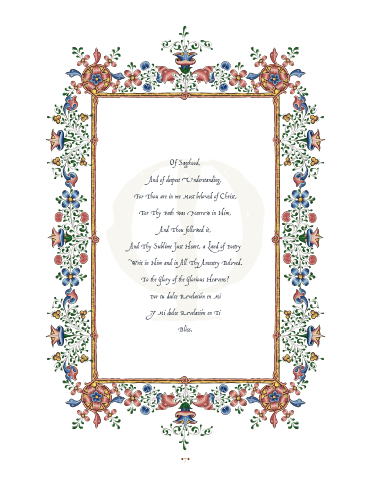 Of Sagehood,
And of deepest Understanding,
For Thou art in me Most beloved of Christ,
For Thy Path was Narrow in Him,
And Thou followed it,
And Thy Sublime Just Heart, a Land of Poetry
Writ in Him and in All Thy Ancestry Beloved,
To the Glory of the Glorious Heavens!
Por tu dulce Revelación en Mi
Y Mi dulce Revelación en Ti
Bliss.